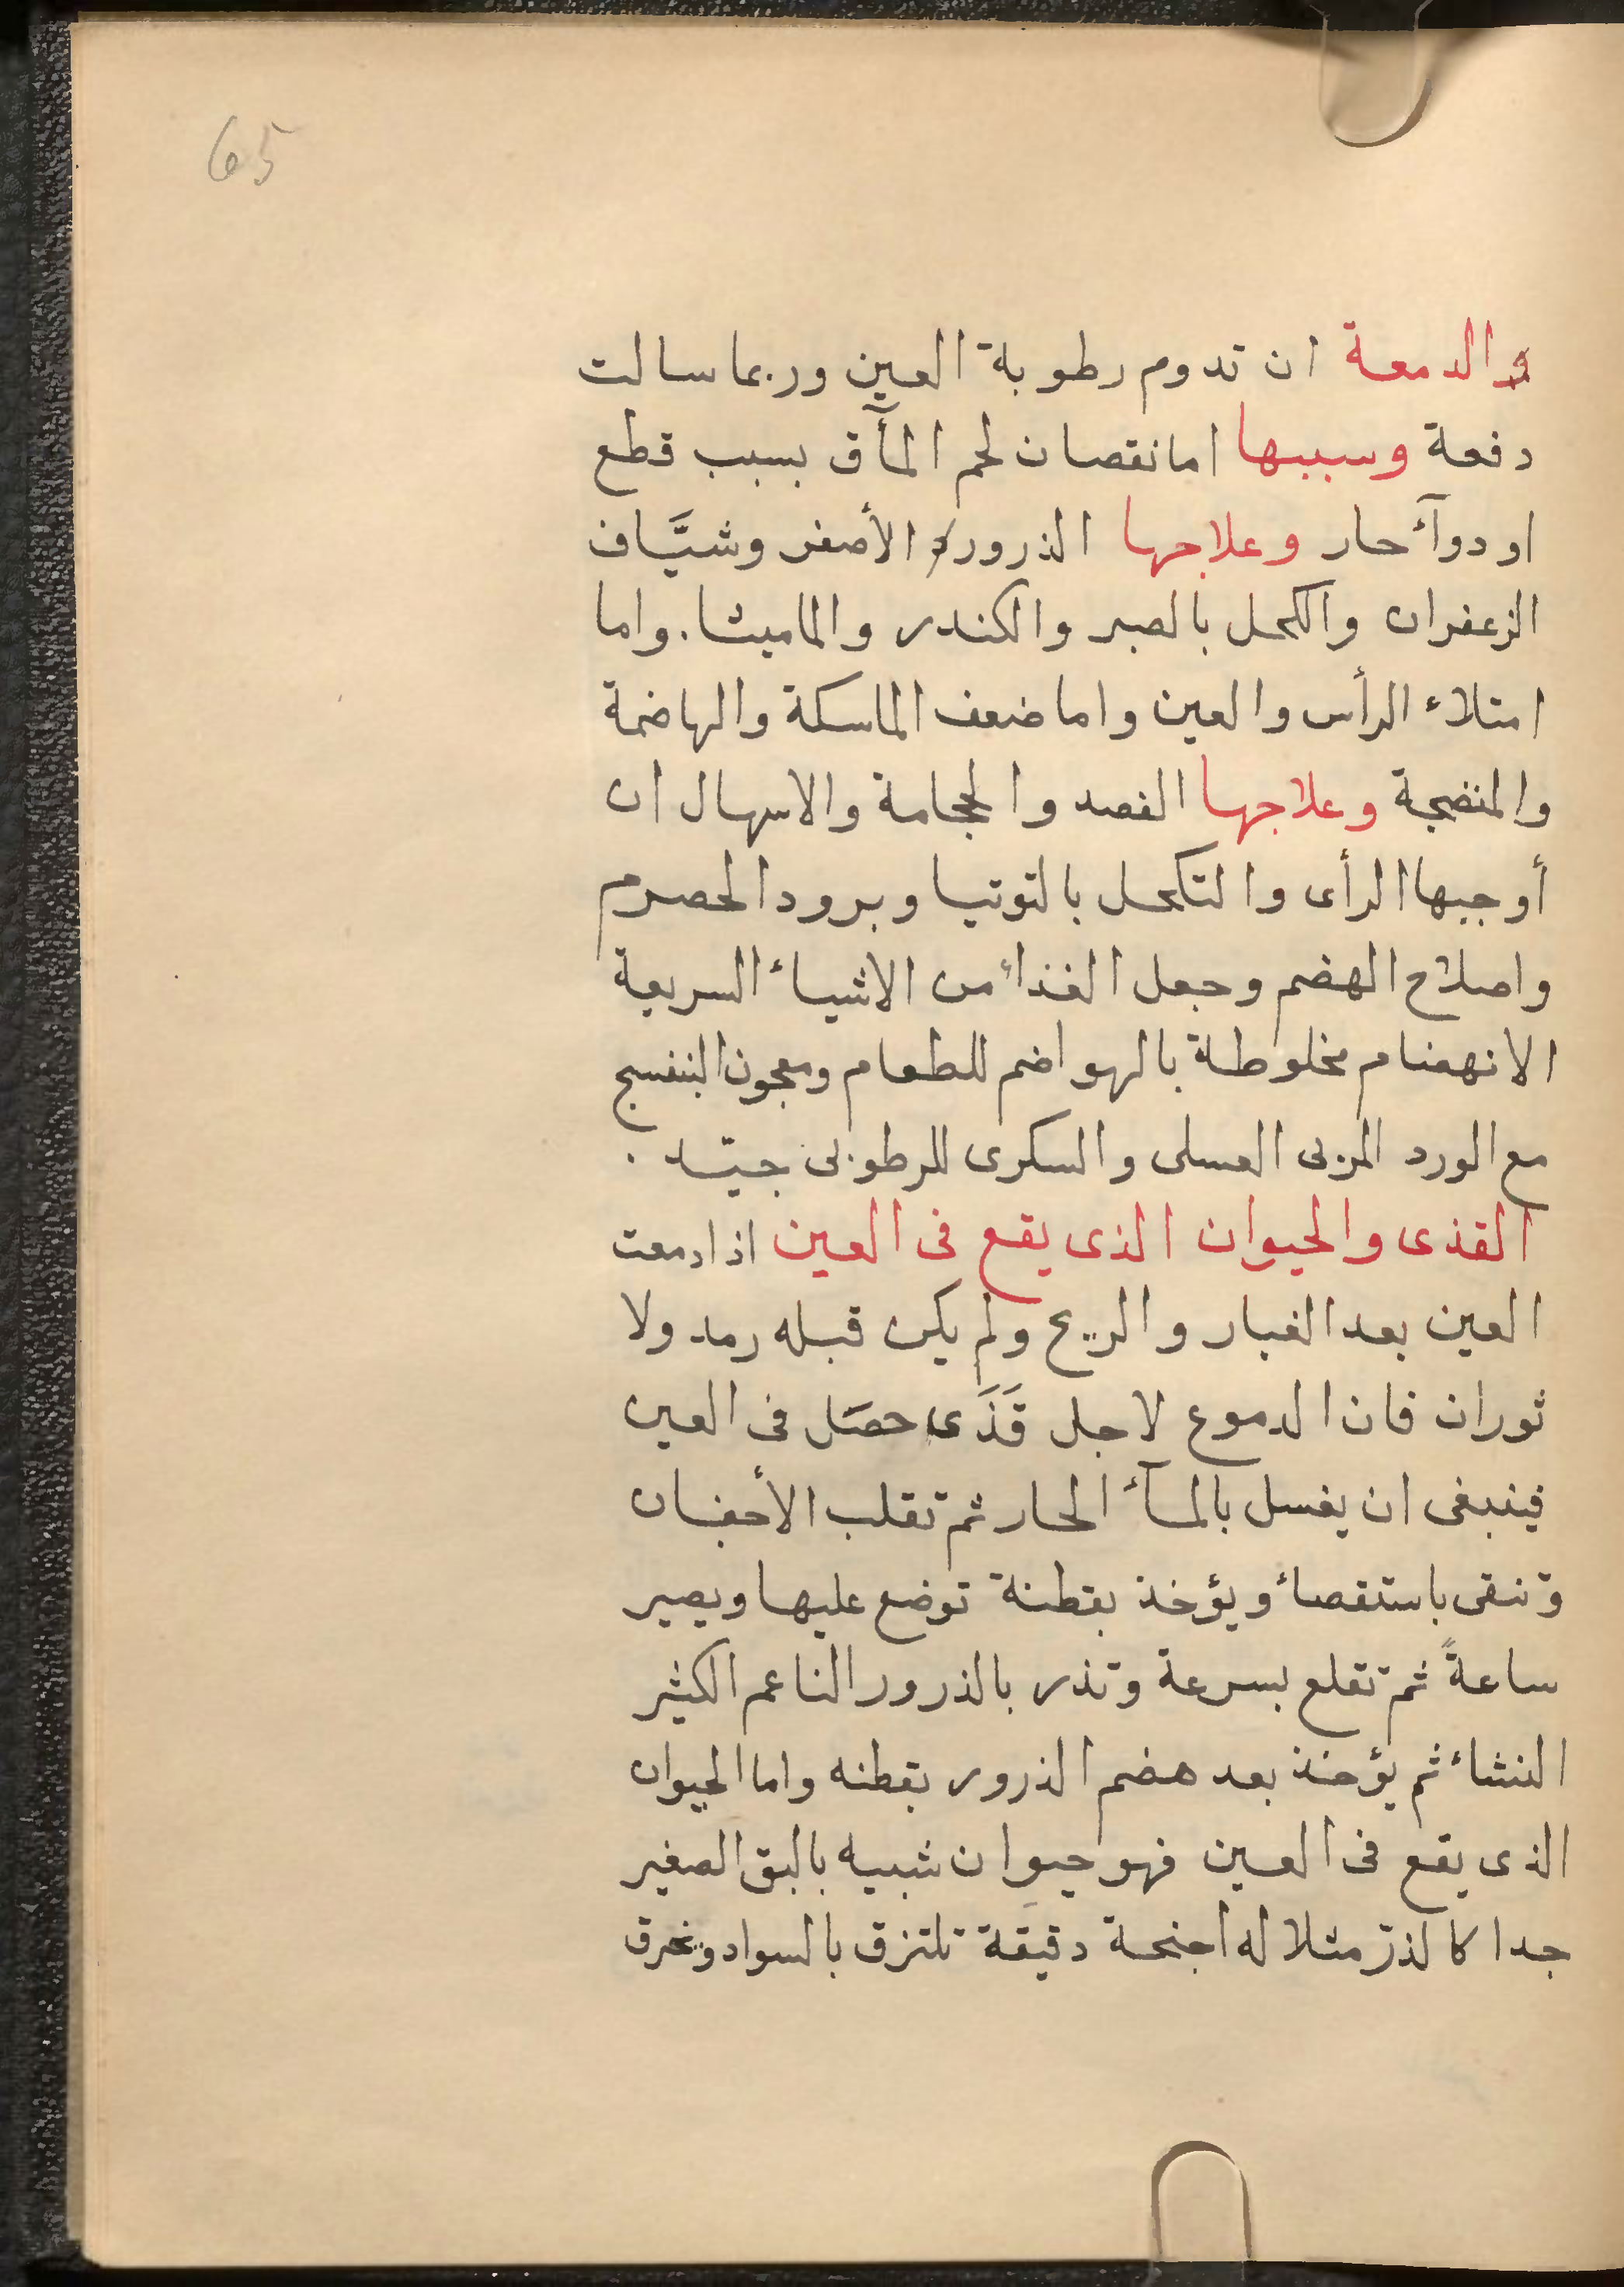 65
والدمعة ان تدوم رطوبة العين وربما سالت
دفعة وسببها اما نقصان لحم المآق بسبب قطع
او دوآء حار وعلاجها الذرور الأصفر وشيَّاف
الزعفران والكحل بالصبر والكندر والماميثا. واما
امتلاء الرأس والعين واما ضعف الماسكة والهاضمة
والمنضجة وعلاجها الفصد والحجامة والاسهال ان
أوجبها الرأى والتكحل بالتوتيا وبرود الحصرم
واصلاح الهضم وجعل الغذاء من الاشياء السريعة
الانهضام مخلوطة بالهواضم للطعام ومعجون البنفسج
مع الورد المربى العسلى والسكرى للرطوبى جيّد .
القذى والحيوان الذى يقع فى العين اذا دمعت
العين بعد الغبار والريح ولم يكن قبله رمد ولا
ثوران فان الدموع لاجل قَذَى حصَل فى العين
فينبغى ان يغسل بالمآء الحار ثم تقلب الأجفان
وتنقى باستقصاء ويؤخذ بقطنة توضع عليها ويصير
ساعةً ثم تقلع بسرعة وتذر بالذرور الناعم الكثير
النشاء ثم يؤخذ بعد هضم الذرور بقطنه واما الحيوان
الذى يقع فى العين فهو حيوان شبيه بالبق الصغير
جدا كالذرّ مثلا له اجنحة دقيقة تلتزق بالسواد ويخرق